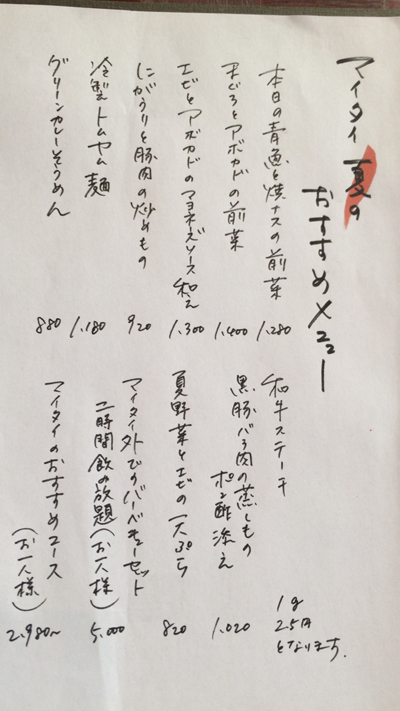 マイタイ 夏の
おすすめメニュー
本日の青魚と焼ナスの前菜
1.280
まぐろとアボカドの前菜
1.400
エビとアボカドのマヨネーズソース和え
1.300
にがうりと豚肉の炒めもの
920
冷製トムヤム麺
1.180
グリーンカレーそうめん
880
和牛ステーキ
1g
25円
となります.
黒豚バラ肉の蒸しもの
ポン酢添え
1.020
夏野菜とエビの天ぷら
820
マイタイ外でのバーベキューセット
二時間飲み放題(お一人様)
5.000
マイタイのおすすめコース
(お一人様)
2.980〜